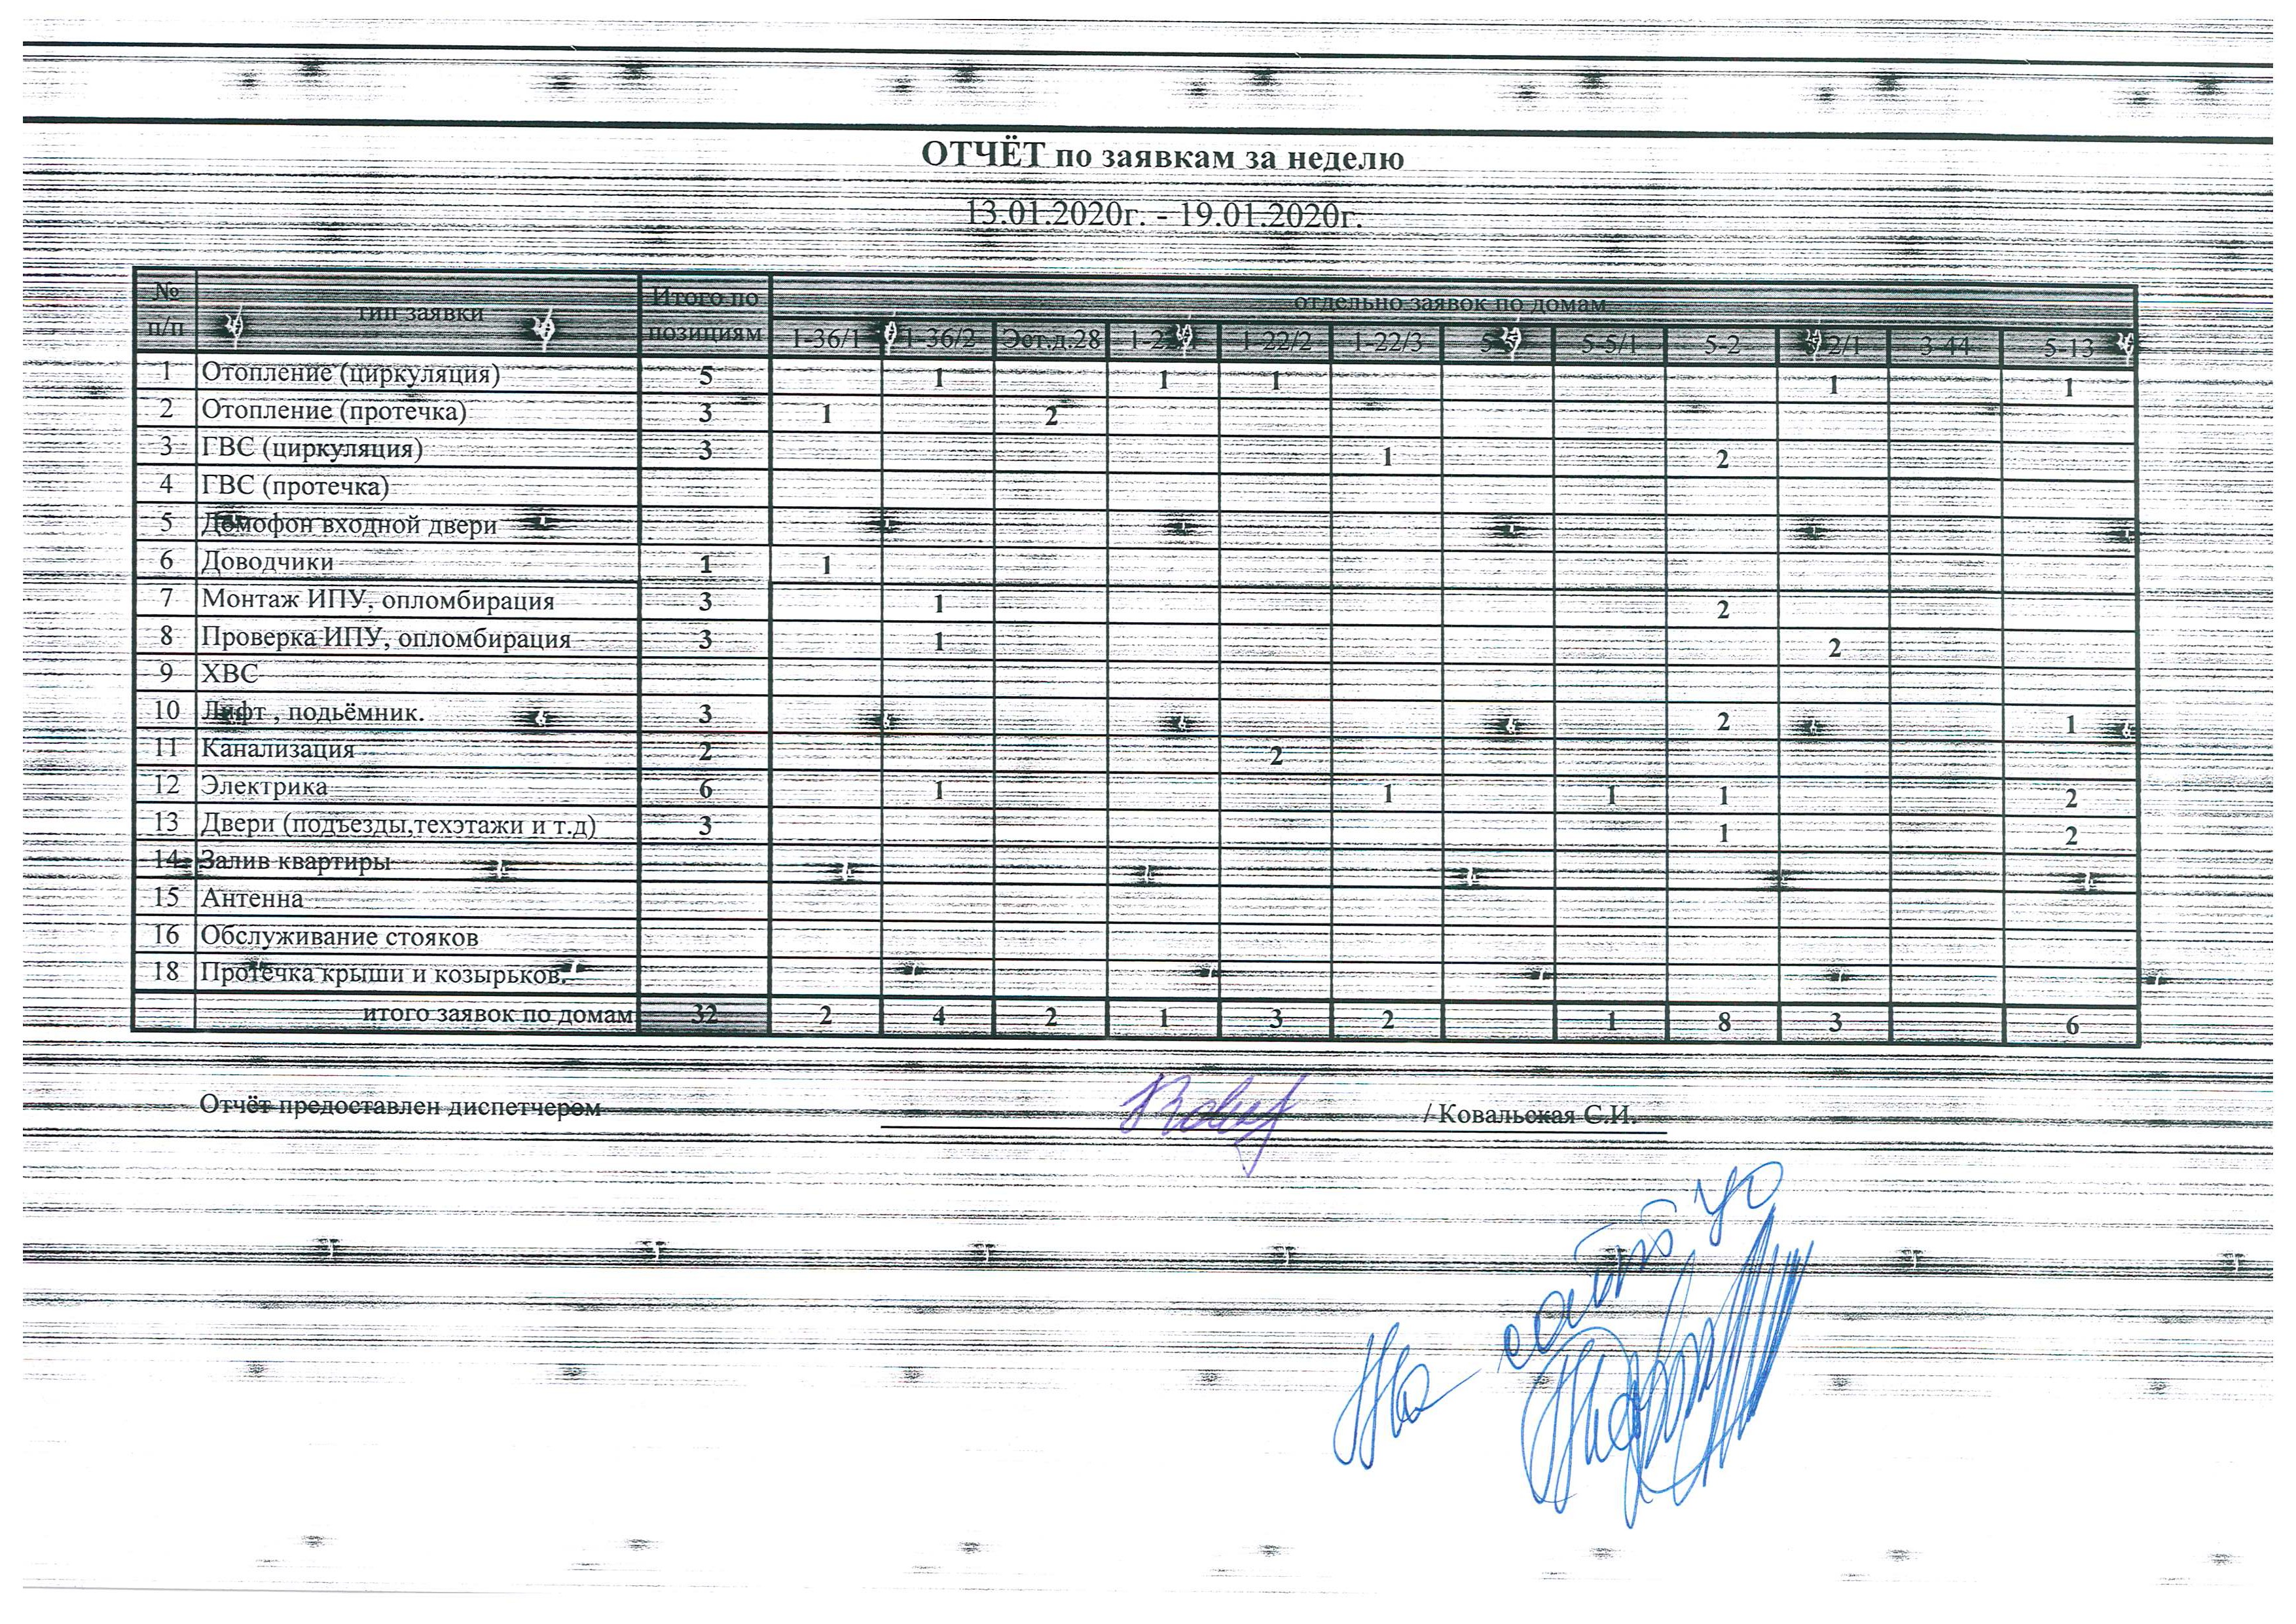 ОТЧЁТ по заявкам за неделю
13.01.2020г. - 19.01.2020г.
№ п/п тип заявки Итого по позициям отдельно заявок по домам
1-36/1 1-36/2 Эст.д.28 1-22/2 1-22/3 5-5/1 5-2 3-44 5-13
1 Отопление (циркуляция) 5 1 1 1 1 1
2 Отопление (протечка) 3 1 2
3 ГВС (циркуляция) 3 1 2
4 ГВС (протечка)
5 Домофон входной двери
6 Доводчики 1 1
7 Монтаж ИПУ, опломбирация 3 1 2
8 Проверка ИПУ, опломбирация 3 1 2
9 ХВС
10 Лифт , подьёмник. 3 2 1
11 Канализация 2 2
12 Электрика 6 1 1 1 1 2
13 Двери (подъезды,техэтажи и т.д) 3 1 2
14 Залив квартиры
15 Антенна
16 Обслуживание стояков
18 Протечка крыши и козырьков.
итого заявок по домам 32 2 4 2 1 3 2 1 8 3 6
Отчёт предоставлен диспетчером / Ковальская С.И.
На сайт